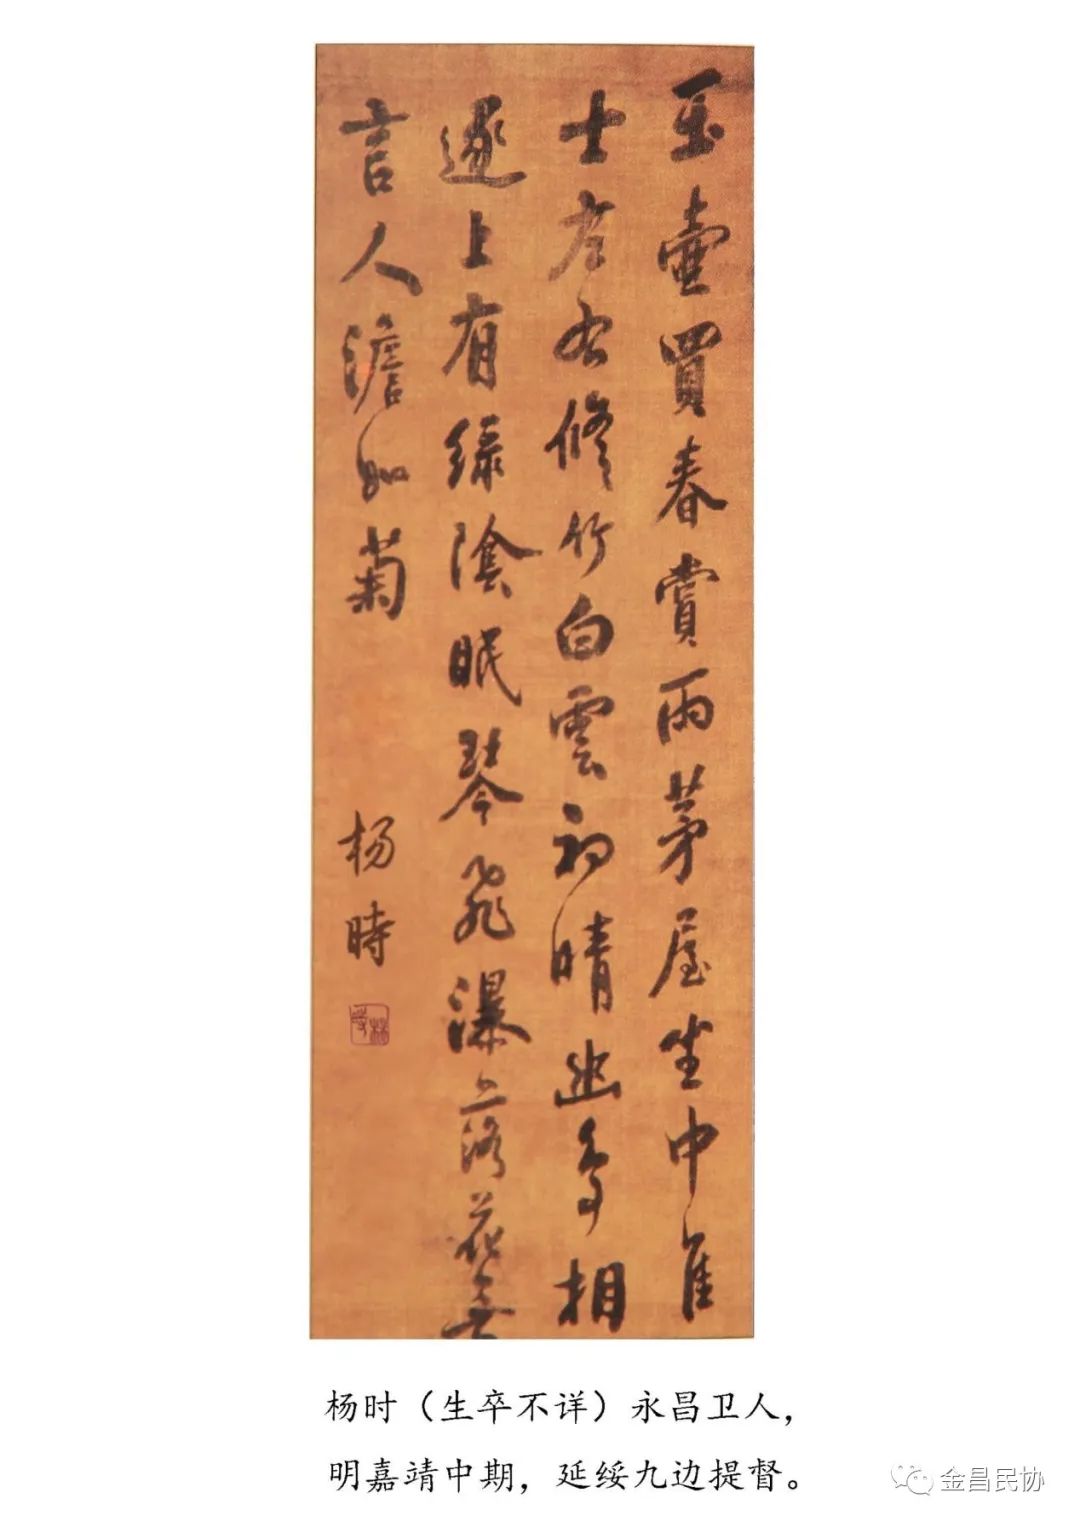 玉壺買春賞雨茅屋坐中佳
士左右修竹白雲初晴幽鳥相
逐上有綠陰眠琴飛瀑落花無
言人澹如菊
杨時
杨时（生卒不详）永昌卫人，
明嘉靖中期，延绥九边提督。
金昌民协